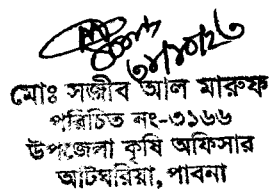 ৩১/১০/২৩
মোঃ সজীব আল মারুফ
পরিচিত নং-৩১৬৬
উপজেলা কৃষি অফিসার
আটঘরিয়া, পাবনা